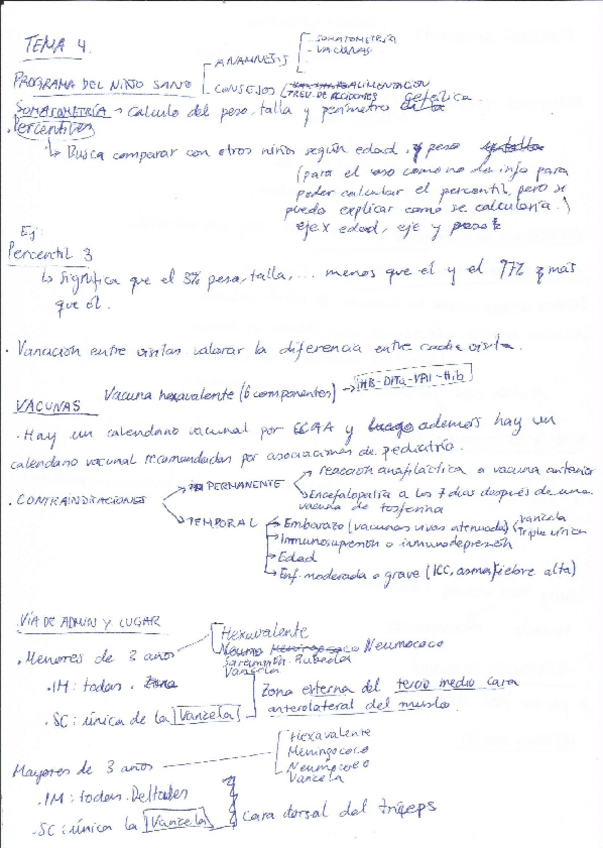 TEMA 4.
PROGRAMA DEL NIÑO SANO
ANAMNESIS
- SOMATOMETRÍA
- VACUNAS
CONSEJOS
ALIMENTACIÓN
PREV. DE ACCIDENTES
SOMATOMETRÍA → calculo del peso, talla y perímetro cefélica.
· Percentiles
↳ Busca comparar con otros niños según edad, y peso
(para el caso como no da info para
poder calcular el percentil, pero se
puede explicar como se calcularía.)
eje x edad, eje y peso
Ej:
Percentil 3
↳ Significa que el 3% pesa, talla, ... menos que él y el 97% más
que él.
· Variación entre visitas valorar la diferencia entre cada visita.
VACUNAS
Vacuna hexavalente (6 componentes) → HB-DTPa-VPI-Hib
· Hay un calendario vacunal por CCAA y luego además hay un
calendario vacunal recomendados por asociaciones de pediatría.
· CONTRAINDICACIONES
PERMANENTE
reacción anafiláctica a vacuna anterior
Encefalopatía a los 7 días después de una
vacuna de tosferina
TEMPORAL
→ Embarazo (vacunas vivas atenuada)
varicela
Triple vírica
→ Inmunosupresión o inmunodepresión
→ Edad
→ Enf. moderada o grave (ICC, asma, fiebre alta)
VÍA DE ADMIN Y LUGAR
· Menores de 3 años
Hexavalente
Neumo Meningococo Neumococo
Sarampión. Rubeola
Varicela
· IM: todas. Zona
· SC: única de la Varicela
Zona externa del tercio medio cara
anterolateral del muslo.
Mayores de 3 años
Hexavalente
Meningococo
Neumococo
Varicela
· IM: todas. Deltoides
· SC: única la Varicela
Cara dorsal del tríceps